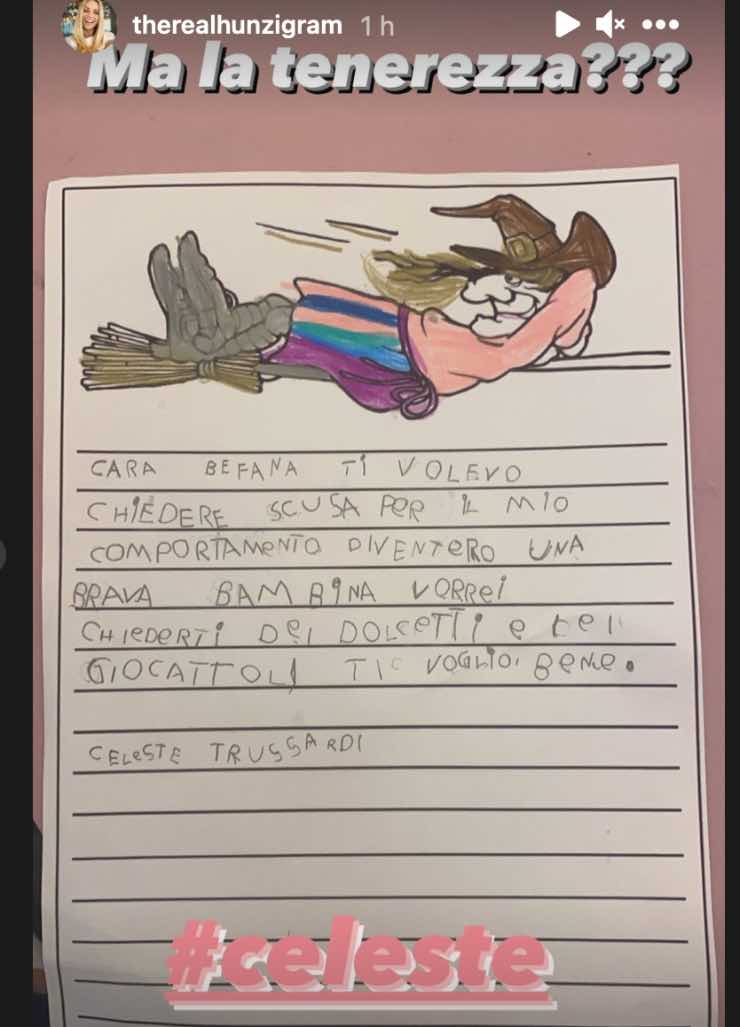 therealhunzigram 1 h
Ma la tenerezza???
CARA BEFANA TI VOLEVO
CHIEDERE SCUSA PER IL MIO
COMPORTAMENTO DIVENTERO UNA
BRAVA BAMBINA VORREI
CHIEDERTI DEI DOLCETTI E DEI
GIOCATTOLI TI VOGLIO BENE.
CELESTE TRUSSARDI
#celeste